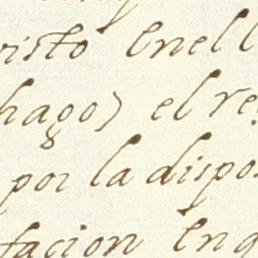 visto Enel l
hago) el re
por la dispo
facion Enq